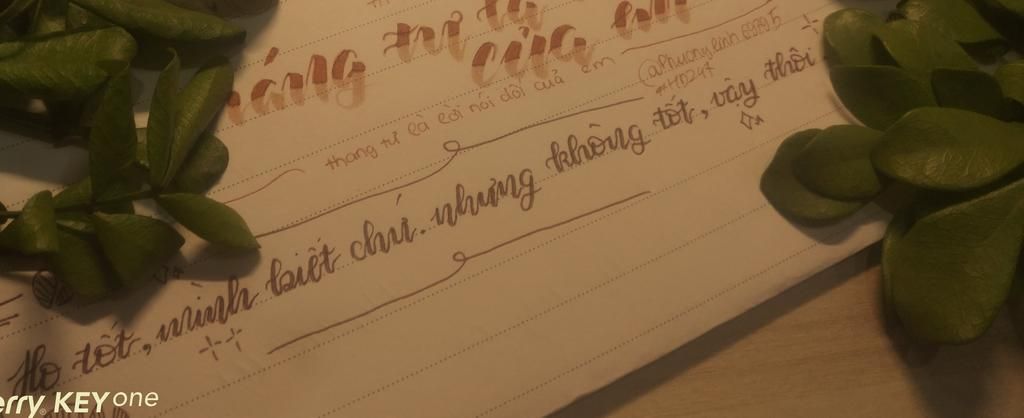 áng tư là
của em
thang tư là lời nói dối của em
@phuonglinh
#HD24f
Họ tốt, mình biết chứ. nhưng không tốt, vậy thôi
erry KEYone